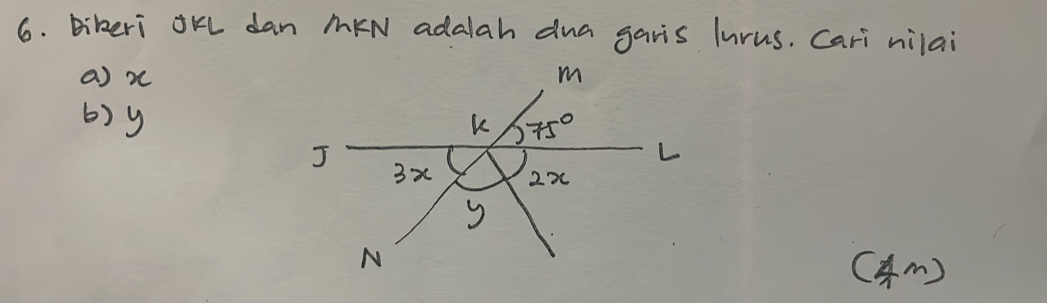 6. Diberi JKL dan MKN adalah dua garis lurus. Cari nilai
a) x
b) y
M
K 75°
J L
3x 2x
y
N
(4m)